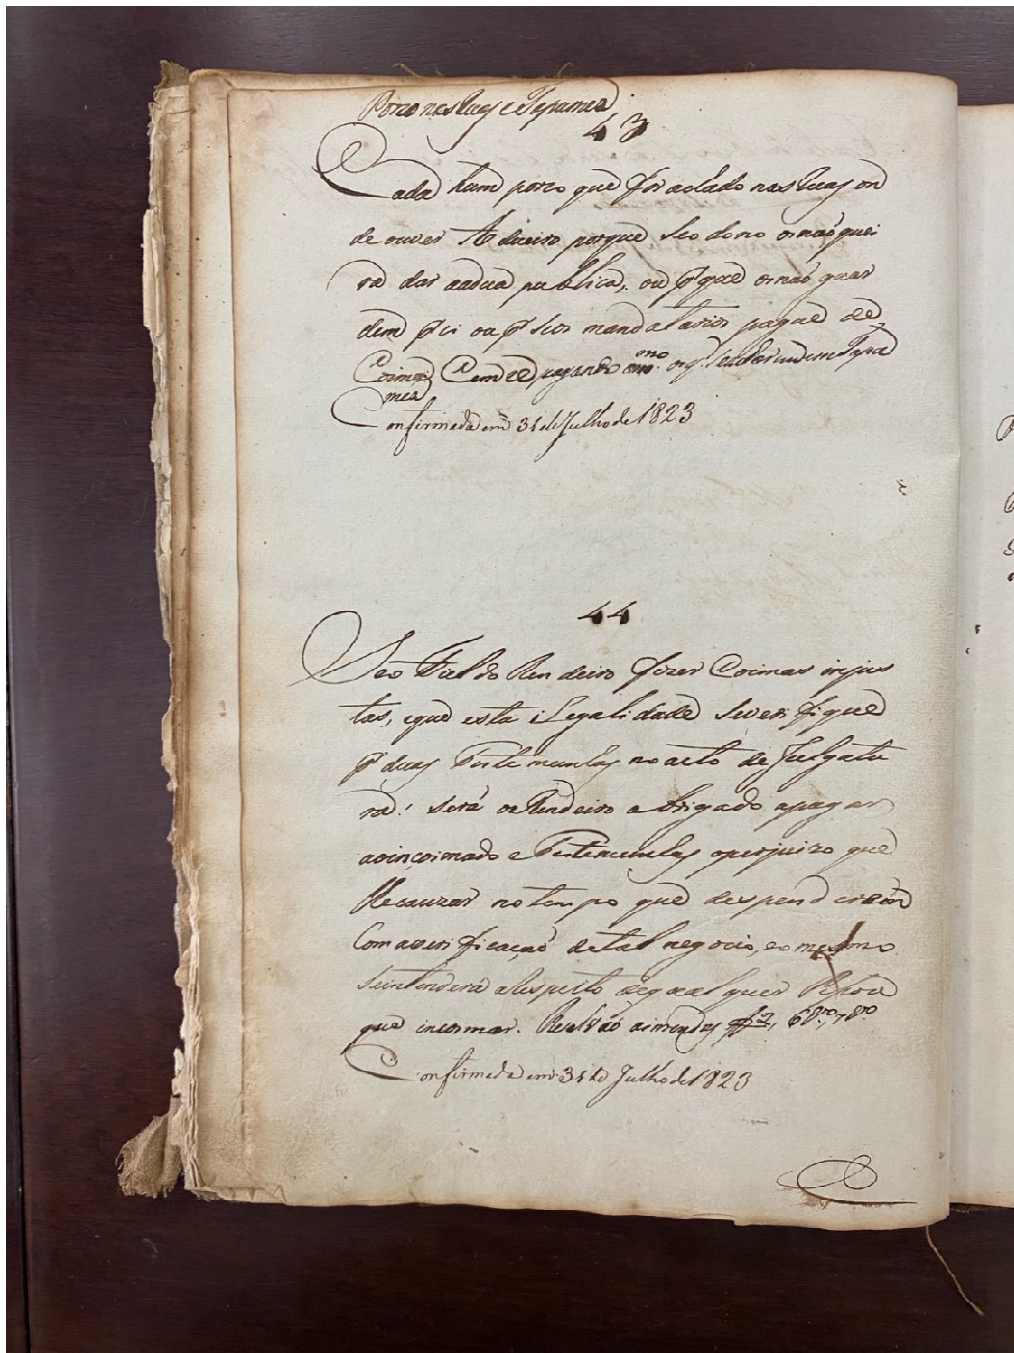 Porco nas Ruas e Tapumes
43
Cada hum porco que for achado nas Ruas on
de ouver Adueiro porque seo dono o não quei
ra dar aadua publica, ou pr que o não guar
dem pr si ou pr seos mandatarios pague de
Coima Cem rs pagando omo
mes
Confirmada em 31 de Julho de 1823
44
Seo Fiel do Rendeiro fizer Coimas injus
tas, eque esta iLegalidade severifique
pr duas Testemunhas no acto de Julgatu
ra: será o Rendeiro obrigado apagar
aoincoimado e Testemunhas oprejuizo que
lhe cauzar no tempo que despenderem
Com averificação detal negocio, eo mesmo
seintenderá aRespeito de qualquer Pessoa
que incoimar.
Confirmada em 31 de Julho de 1823